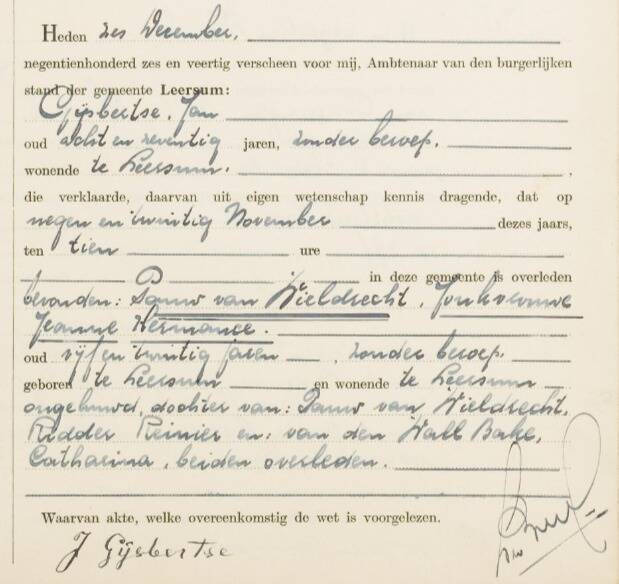 Heden zes December,
negentienhonderd zes en veertig verscheen voor mij, Ambtenaar van den burgerlijken
stand der gemeente Leersum:
Gijsbertse, Jan
oud acht en zeventig jaren, zonder beroep,
wonende te Leersum,
die verklaarde, daarvan uit eigen wetenschap kennis dragende, dat op
negen en twintig November dezes jaars,
ten tien ure
in deze gemeente is overleden
bevonden: Pauw van Wieldrecht, Jonkvrouwe
Jeanne Hermance.
oud vijf en twintig jaren, zonder beroep.
geboren te Leersum en wonende te Leersum
ongehuwd, dochter van: Pauw van Wieldrecht,
Ridder Reinier en: van den Wall Bake,
Catharina, beiden overleden.
Waarvan akte, welke overeenkomstig de wet is voorgelezen.
J Gijsbertse